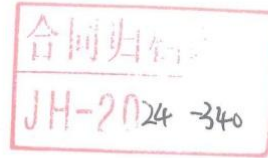 合同归
JH-2024-340